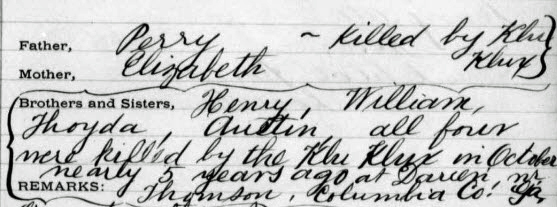 Father, Perry ~ killed by Klu
Mother, Elizabeth Klux
Brothers and Sisters, Henry, William,
Thoyda, Austin, all four
were killed by the Klu Klux in October
nearly 5 years ago at Darien nr
REMARKS: Thomson, Columbia Co. Ga,